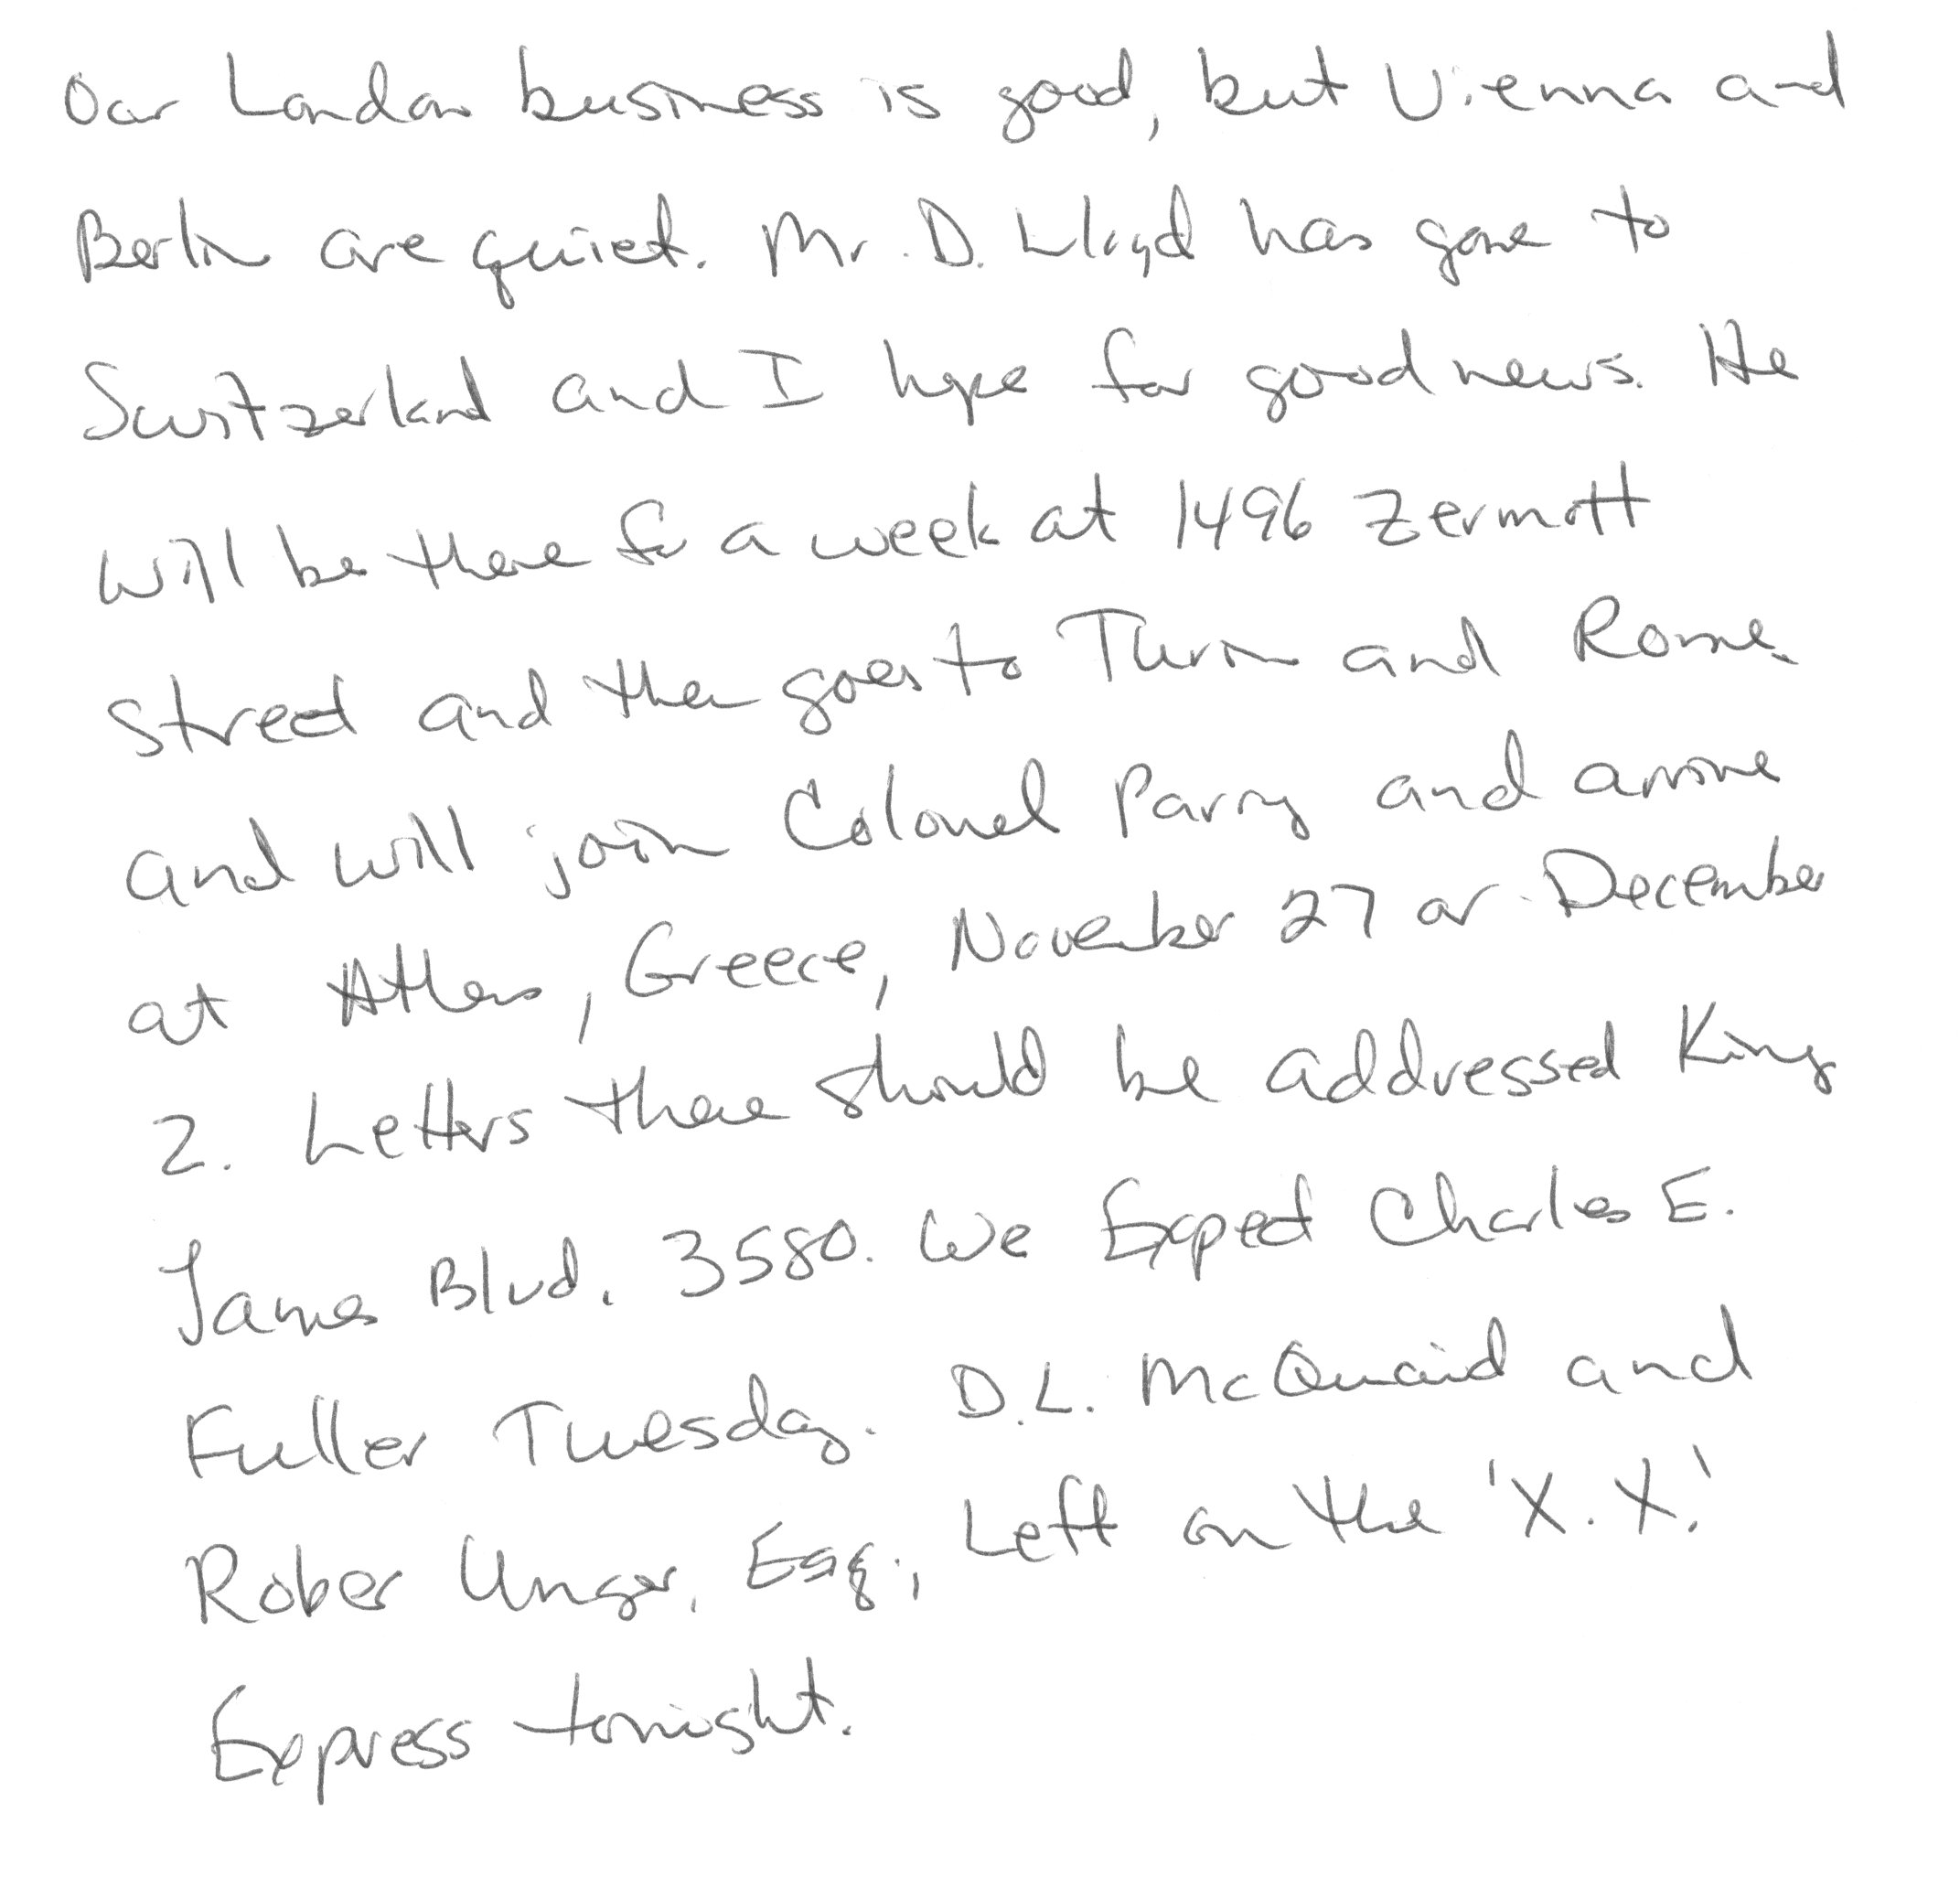 Our London business is good, but Vienna and
Berlin are quiet. Mr. D. Lloyd has gone to
Switzerland and I hope for good news. He
will be there for a week at 1496 Zermott
street and then goes to Turin and Rome
and will join Colonel Parry and arrive
at Athens, Greece, November 27 or December
2. Letters there should be addressed King
James Blvd. 3580. We Expect Charles E.
Fuller Tuesday. D.L. McQuaid and
Rober Unger, Esq., Left on the 'X.X.'
Express tonight.